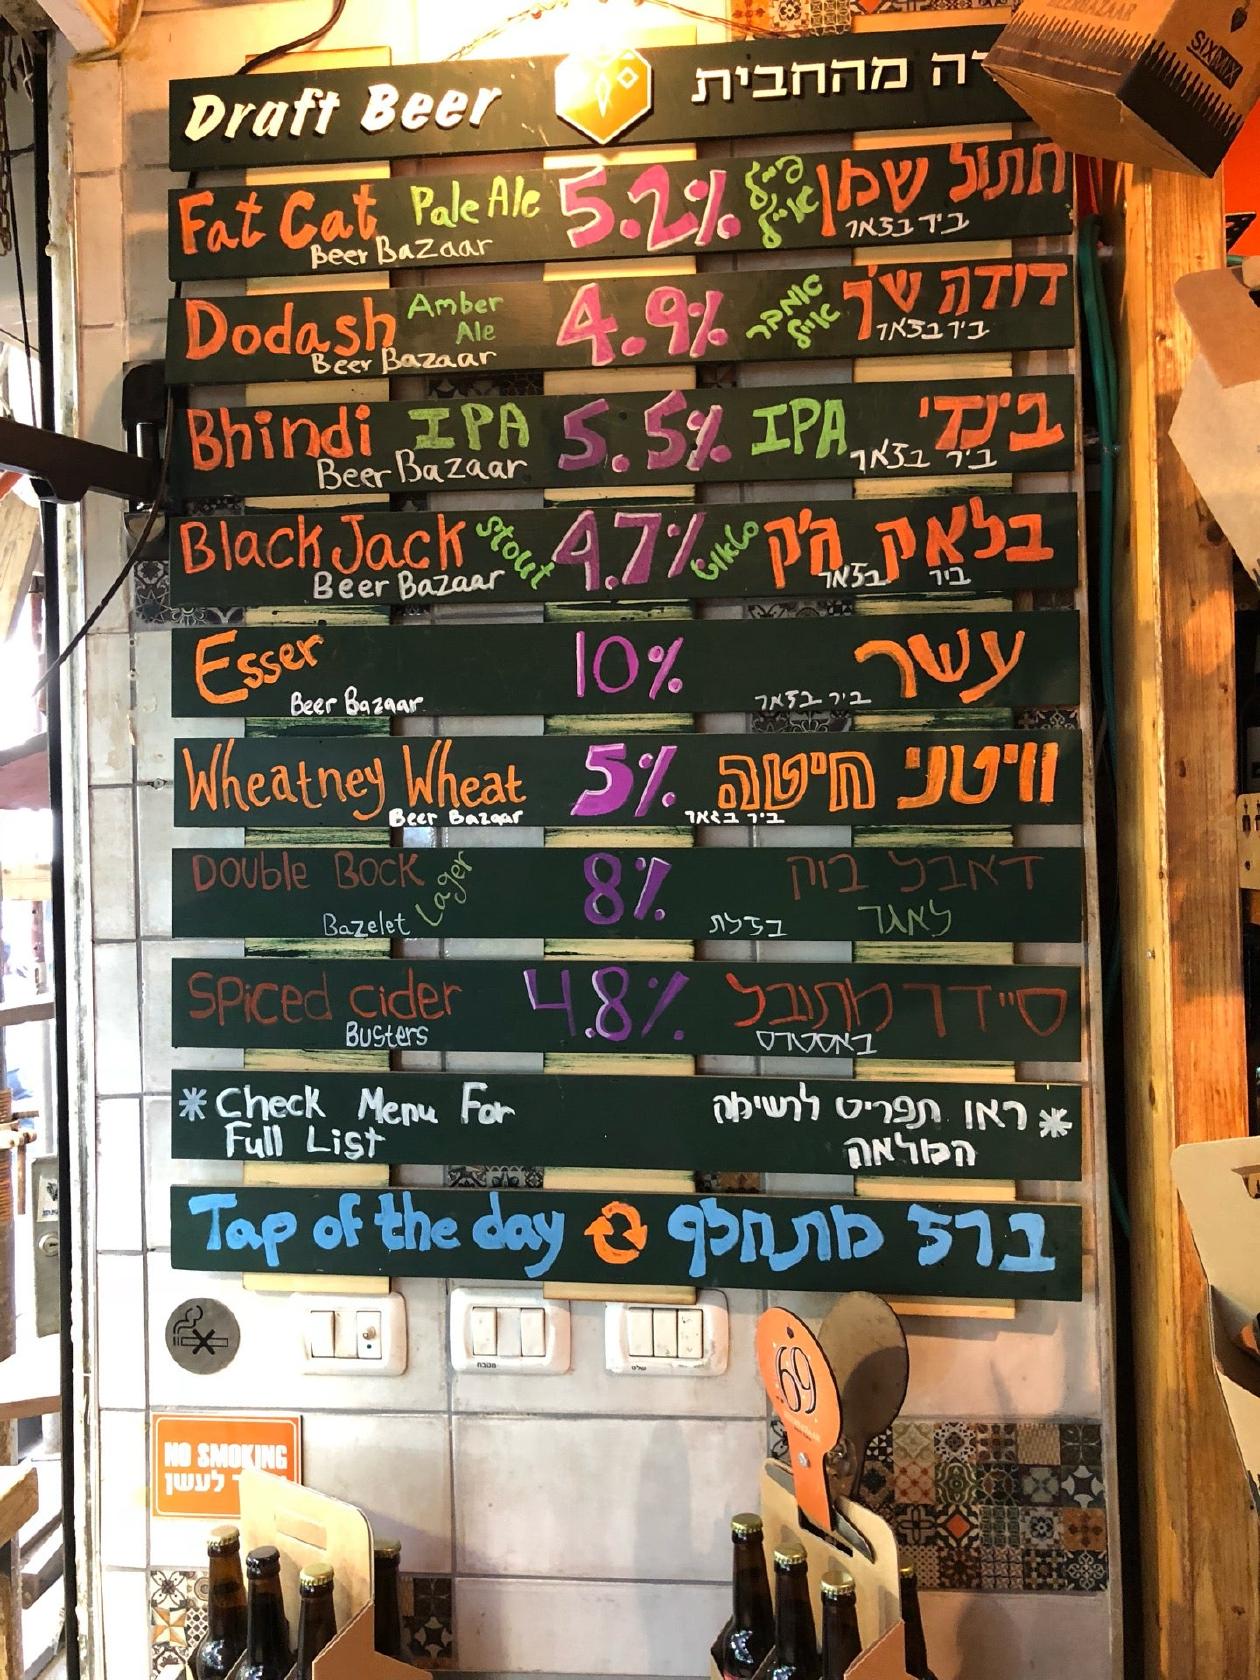 Draft Beer
מהחבית
Fat Cat Pale Ale 5.2% פייל אייל חתול שמן
Beer Bazaar ביר בזאר
Dodash Amber Ale 4.9% אמבר אייל דודה ש'ך
Beer Bazaar ביר בזאר
Bhindi IPA 5.5% IPA בינדי
Beer Bazaar ביר בזאר
Black Jack Stout 4.7% סטאוט בלאק ג'ק
Beer Bazaar ביר בזאר
Esser 10% עשר
Beer Bazaar ביר בזאר
Wheatney Wheat 5% וויטני חיטה
Beer Bazaar ביר בזאר
Double Bock Lager 8% דאבל בוק
Bazelet בזלת לאגר
Spiced cider 4.8% סיידר מתובל
Busters באסטרס
* Check Menu For ראו תפריט לרשימה *
Full List המלאה
Tap of the day ברז מתחלף
מטבח
שלט
NO SMOKING
לעשן
69
BEERBAZAAR
SIXMIX